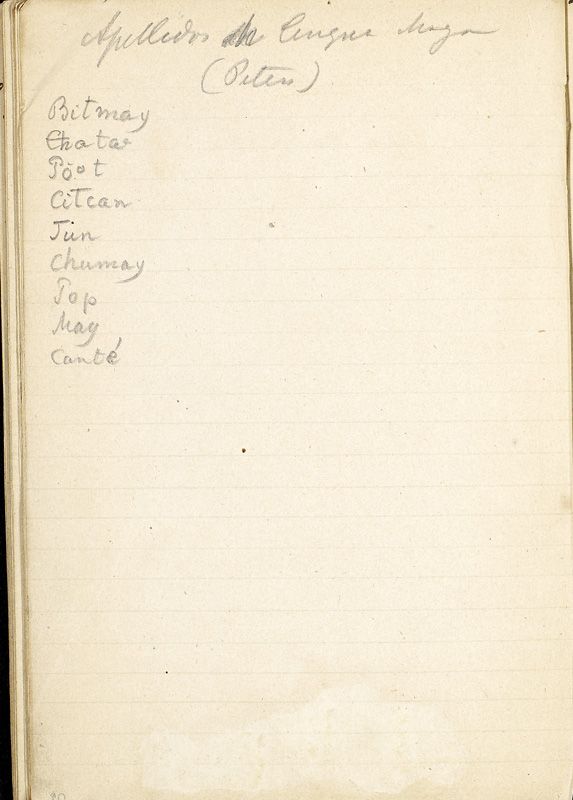 Apellidos en lengua Maya
(Peten)
Bitmay
Chatar
Pöot
Citcan
Tun
Chumay
Pop
May
Canté